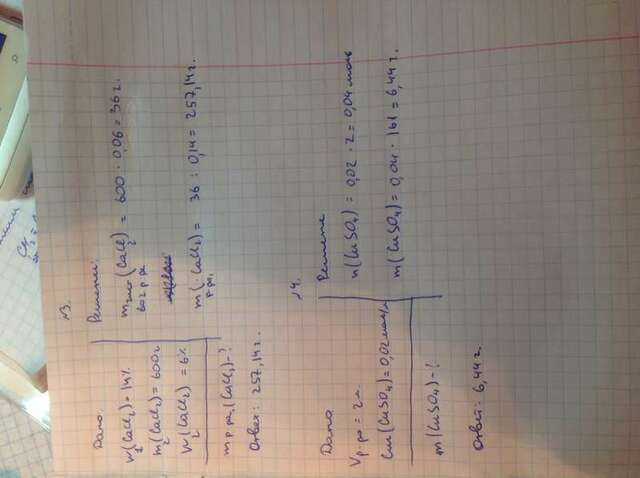 №3.
Дано:
w₁(CaCl₂) = 14%
m₂(CaCl₂) = 600г
w₂(CaCl₂) = 6%
m р-ра, (CaCl₂) - ?
Решение:
m (CaCl₂) = 600 · 0,06 = 36 г.
во 2 р-ре
m (CaCl₂) = 36 : 0,14 = 257,14 г.
р-ра,
Ответ: 257,14 г.
№4.
Дано
Vр-ра = 2 л.
Cm(CuSO₄) = 0,02 моль/л
m(CuSO₄) - ?
Решение
n(CuSO₄) = 0,02 · 2 = 0,04 моль
m(CuSO₄) = 0,04 · 161 = 6,44 г.
Ответ: 6,44 г.